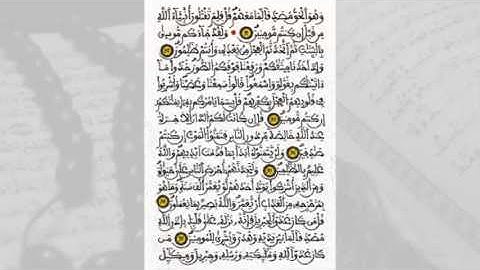 وَهُوَ اَ۬لْحَقُّ مُصَدِّقاٗ لِّمَا مَعَهُمْ قُلْ فَلِمَ تَقْتُلُونَ أَنۢبِئَآءَ اَ۬للَّهِ
مِن قَبْلُ إِن كُنتُم مُّومِنِينَ وَلَقَدْ جَآءَكُم مُّوسَىٰ
بِالْبَيِّنَٰتِ ثُمَّ اَ۪تَّخَذتُّمُ اُ۬لْعِجْلَ مِنۢ بَعْدِهِۦ وَأَنتُمْ ظَٰلِمُونَ
وَإِذَ اَخَذْنَا مِيثَٰقَكُمْ وَرَفَعْنَا فَوْقَكُمُ اُ۬لطُّورَ خُذُواْ مَآ
ءَاتَيْنَٰكُم بِقُوَّةٖ وَاسْمَعُواْ قَالُواْ سَمِعْنَا وَعَصَيْنَا وَأُشْرِبُواْ
فِي قُلُوبِهِمُ اُ۬لْعِجْلَ بِكُفْرِهِمْ قُلْ بِيسَمَا يَامُرُكُم بِهِۦٓ إِيمَٰنُكُمُۥٓ
إِن كُنتُم مُّومِنِينَ قُلِ اِن كَانَتْ لَكُمُ اُ۬لدَّارُ اُ۬لَاخِرَةُ
عِندَ اَ۬للَّهِ خَالِصَةٗ مِّن دُونِ اِ۬لنَّاسِ فَتَمَنَّوُاْ اُ۬لْمَوْتَ إِن كُنتُمْ
صَٰدِقِينَ وَلَنْ يَّتَمَنَّوْهُ أَبَداَۢ بِمَا قَدَّمَتَ اَيْدِيهِمْ وَاللَّهُ
عَلِيمُۢ بِالظَّٰلِمِينَ وَلَتَجِدَنَّهُمُۥٓ أَحْرَصَ اَ۬لنَّاسِ عَلَىٰ حَيَوٰةٖ
وَمِنَ اَ۬لذِينَ أَشْرَكُواْ يَوَدُّ أَحَدُهُمْ لَوْ يُعَمَّرُ أَلْفَ سَنَةٖ وَمَا هُوَ
بِمُزَحْزِحِهِۦ مِنَ اَ۬لْعَذَابِ أَنْ يُّعَمَّرَ وَاللَّهُ بَصِيرُۢ بِمَا يَعْمَلُونَ
قُلْ مَن كَانَ عَدُوّاٗ لِّجِبْرِيلَ فَإِنَّهُۥ نَزَّلَهُۥ عَلَىٰ قَلْبِكَ بِإِذْنِ اِ۬للَّهِ
مُصَدِّقاٗ لِّمَا بَيْنَ يَدَيْهِ وَهُدىٗ وَبُشْرَىٰ لِلْمُومِنِينَ مَن
كَانَ عَدُوّاٗ لِّلهِ وَمَلَٰٓئِكَتِهِۦ وَرُسُلِهِۦ وَجِبْرِيلَ وَمِيكَٰٓئِلَ